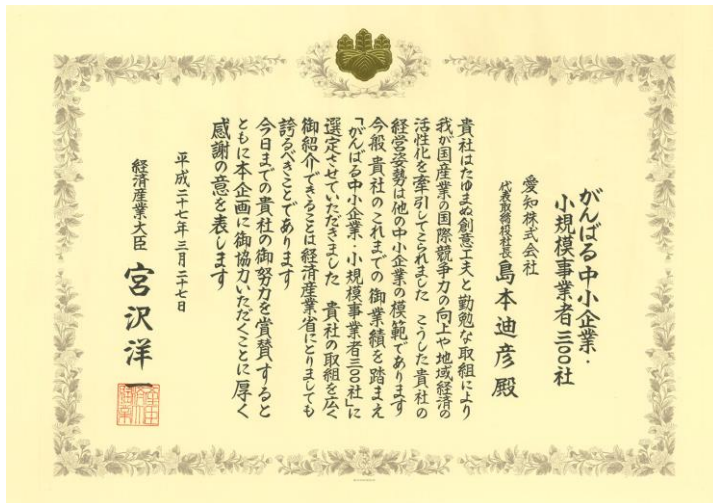 がんばる中小企業・
小規模事業者三〇〇社
愛知株式会社
代表取締役社長 島本迪彦 殿
貴社はたゆまぬ創意工夫と勤勉な取組により
我が国産業の国際競争力の向上や地域経済の
活性化を牽引してこられました こうした貴社の
経営姿勢は他の中小企業の模範であります
今般 貴社のこれまでの御業績を踏まえ
「がんばる中小企業・小規模事業者三〇〇社」に
選定させていただきました 貴社の取組を広く
御紹介できることは経済産業省にとりましても
誇るべきことであります
今日までの貴社の御努力を賞賛すると
ともに本企画に御協力いただくことに厚く
感謝の意を表します
平成二十七年三月二十七日
経済産業大臣 宮沢洋一